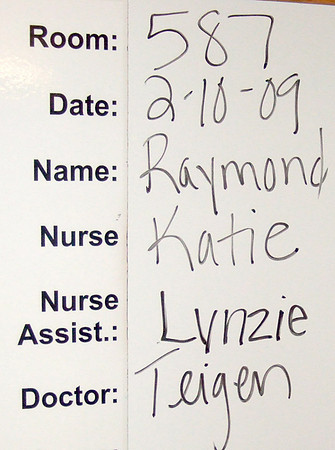 Room: 587
Date: 2-10-09
Name: Raymond
Nurse Katie
Nurse
Assist.: Lynzie
Doctor: Teigen